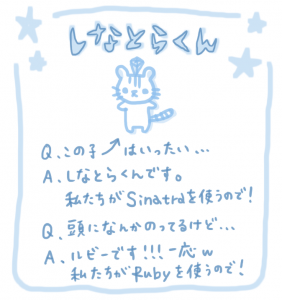 しなとらくん
Q、この子↗はいったい、、、
A、しなとらくんです。
私たちがSinatraを使うので!
Q、頭になんかのってるけど...
A、ルビーです!!!一応w
私たちがRubyを使うので!